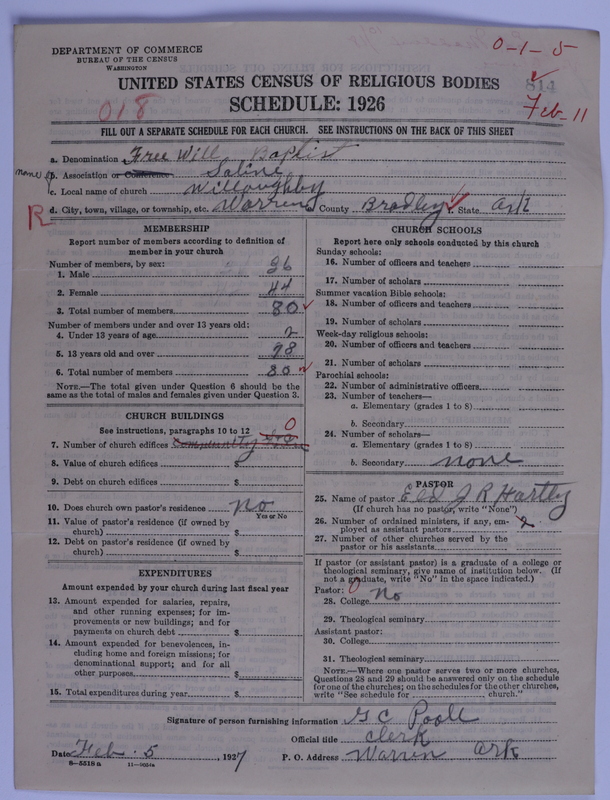 DEPARTMENT OF COMMERCE
BUREAU OF THE CENSUS
WASHINGTON
0-1-5
UNITED STATES CENSUS OF RELIGIOUS BODIES
814
SCHEDULE: 1926
018
Feb-11
FILL OUT A SEPARATE SCHEDULE FOR EACH CHURCH. SEE INSTRUCTIONS ON THE BACK OF THIS SHEET
a. Denomination Free Will Baptist
none b. Association or Conference Saline
c. Local name of church Willoughby
R d. City, town, village, or township, etc. Warren e. County Bradley f. State Ark
MEMBERSHIP
Report number of members according to definition of member in your church
Number of members, by sex:
1. Male 36
2. Female 44
3. Total number of members 80
Number of members under and over 13 years old:
4. Under 13 years of age 2
5. 13 years old and over 78
6. Total number of members 80
NOTE.—The total given under Question 6 should be the same as the total of males and females given under Question 3.
CHURCH BUILDINGS
See instructions, paragraphs 10 to 12 0
7. Number of church edifices Community
8. Value of church edifices $
9. Debt on church edifices $
10. Does church own pastor's residence No
Yes or No
11. Value of pastor's residence (if owned by church) $
12. Debt on pastor's residence (if owned by church) $
EXPENDITURES
Amount expended by your church during last fiscal year
13. Amount expended for salaries, repairs, and other running expenses; for improvements or new buildings; and for payments on church debt $
14. Amount expended for benevolences, including home and foreign missions; for denominational support; and for all other purposes $
15. Total expenditures during year $
CHURCH SCHOOLS
Report here only schools conducted by this church
Sunday schools:
16. Number of officers and teachers
17. Number of scholars
Summer vacation Bible schools:
18. Number of officers and teachers
19. Number of scholars
Week-day religious schools:
20. Number of officers and teachers
21. Number of scholars
Parochial schools:
22. Number of administrative officers
23. Number of teachers—
a. Elementary (grades 1 to 8)
b. Secondary
24. Number of scholars—
a. Elementary (grades 1 to 8)
b. Secondary none
PASTOR
25. Name of pastor Eld J R Hartley
(If church has no pastor, write "None")
26. Number of ordained ministers, if any, employed as assistant pastors 2
27. Number of other churches served by the pastor or his assistants
If pastor (or assistant pastor) is a graduate of a college or theological seminary, give name of institution below. (If not a graduate, write "No" in the space indicated.)
Pastor: 0
28. College No
29. Theological seminary
Assistant pastor:
30. College
31. Theological seminary
NOTE.—Where one pastor serves two or more churches, Questions 28 and 29 should be answered only on the schedule for one of the churches; on the schedules for the other churches, write "See schedule for church."
Signature of person furnishing information G C Pooll
Official title Clerk
Date Feb 5, 1927 P. O. Address Warren Ark
8-5518 a